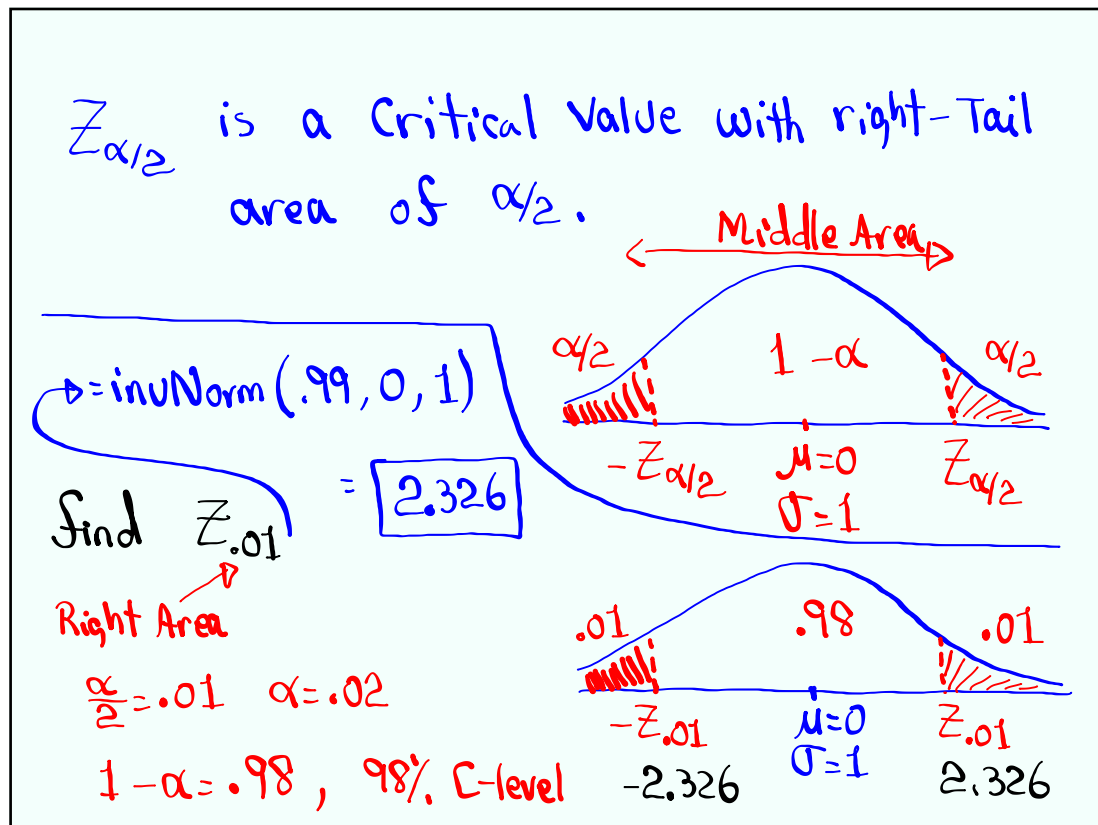 Zα/2 is a Critical Value with right-Tail
area of α/2.
Middle Area
α/2 1-α α/2
-Zα/2 μ=0 Zα/2
σ=1
=invNorm(.99, 0, 1)
= 2.326
find Z.01
Right Area
α/2=.01 α=.02
1-α=.98, 98% C-level
.01 .98 .01
-Z.01 μ=0 Z.01
σ=1
-2.326 2.326